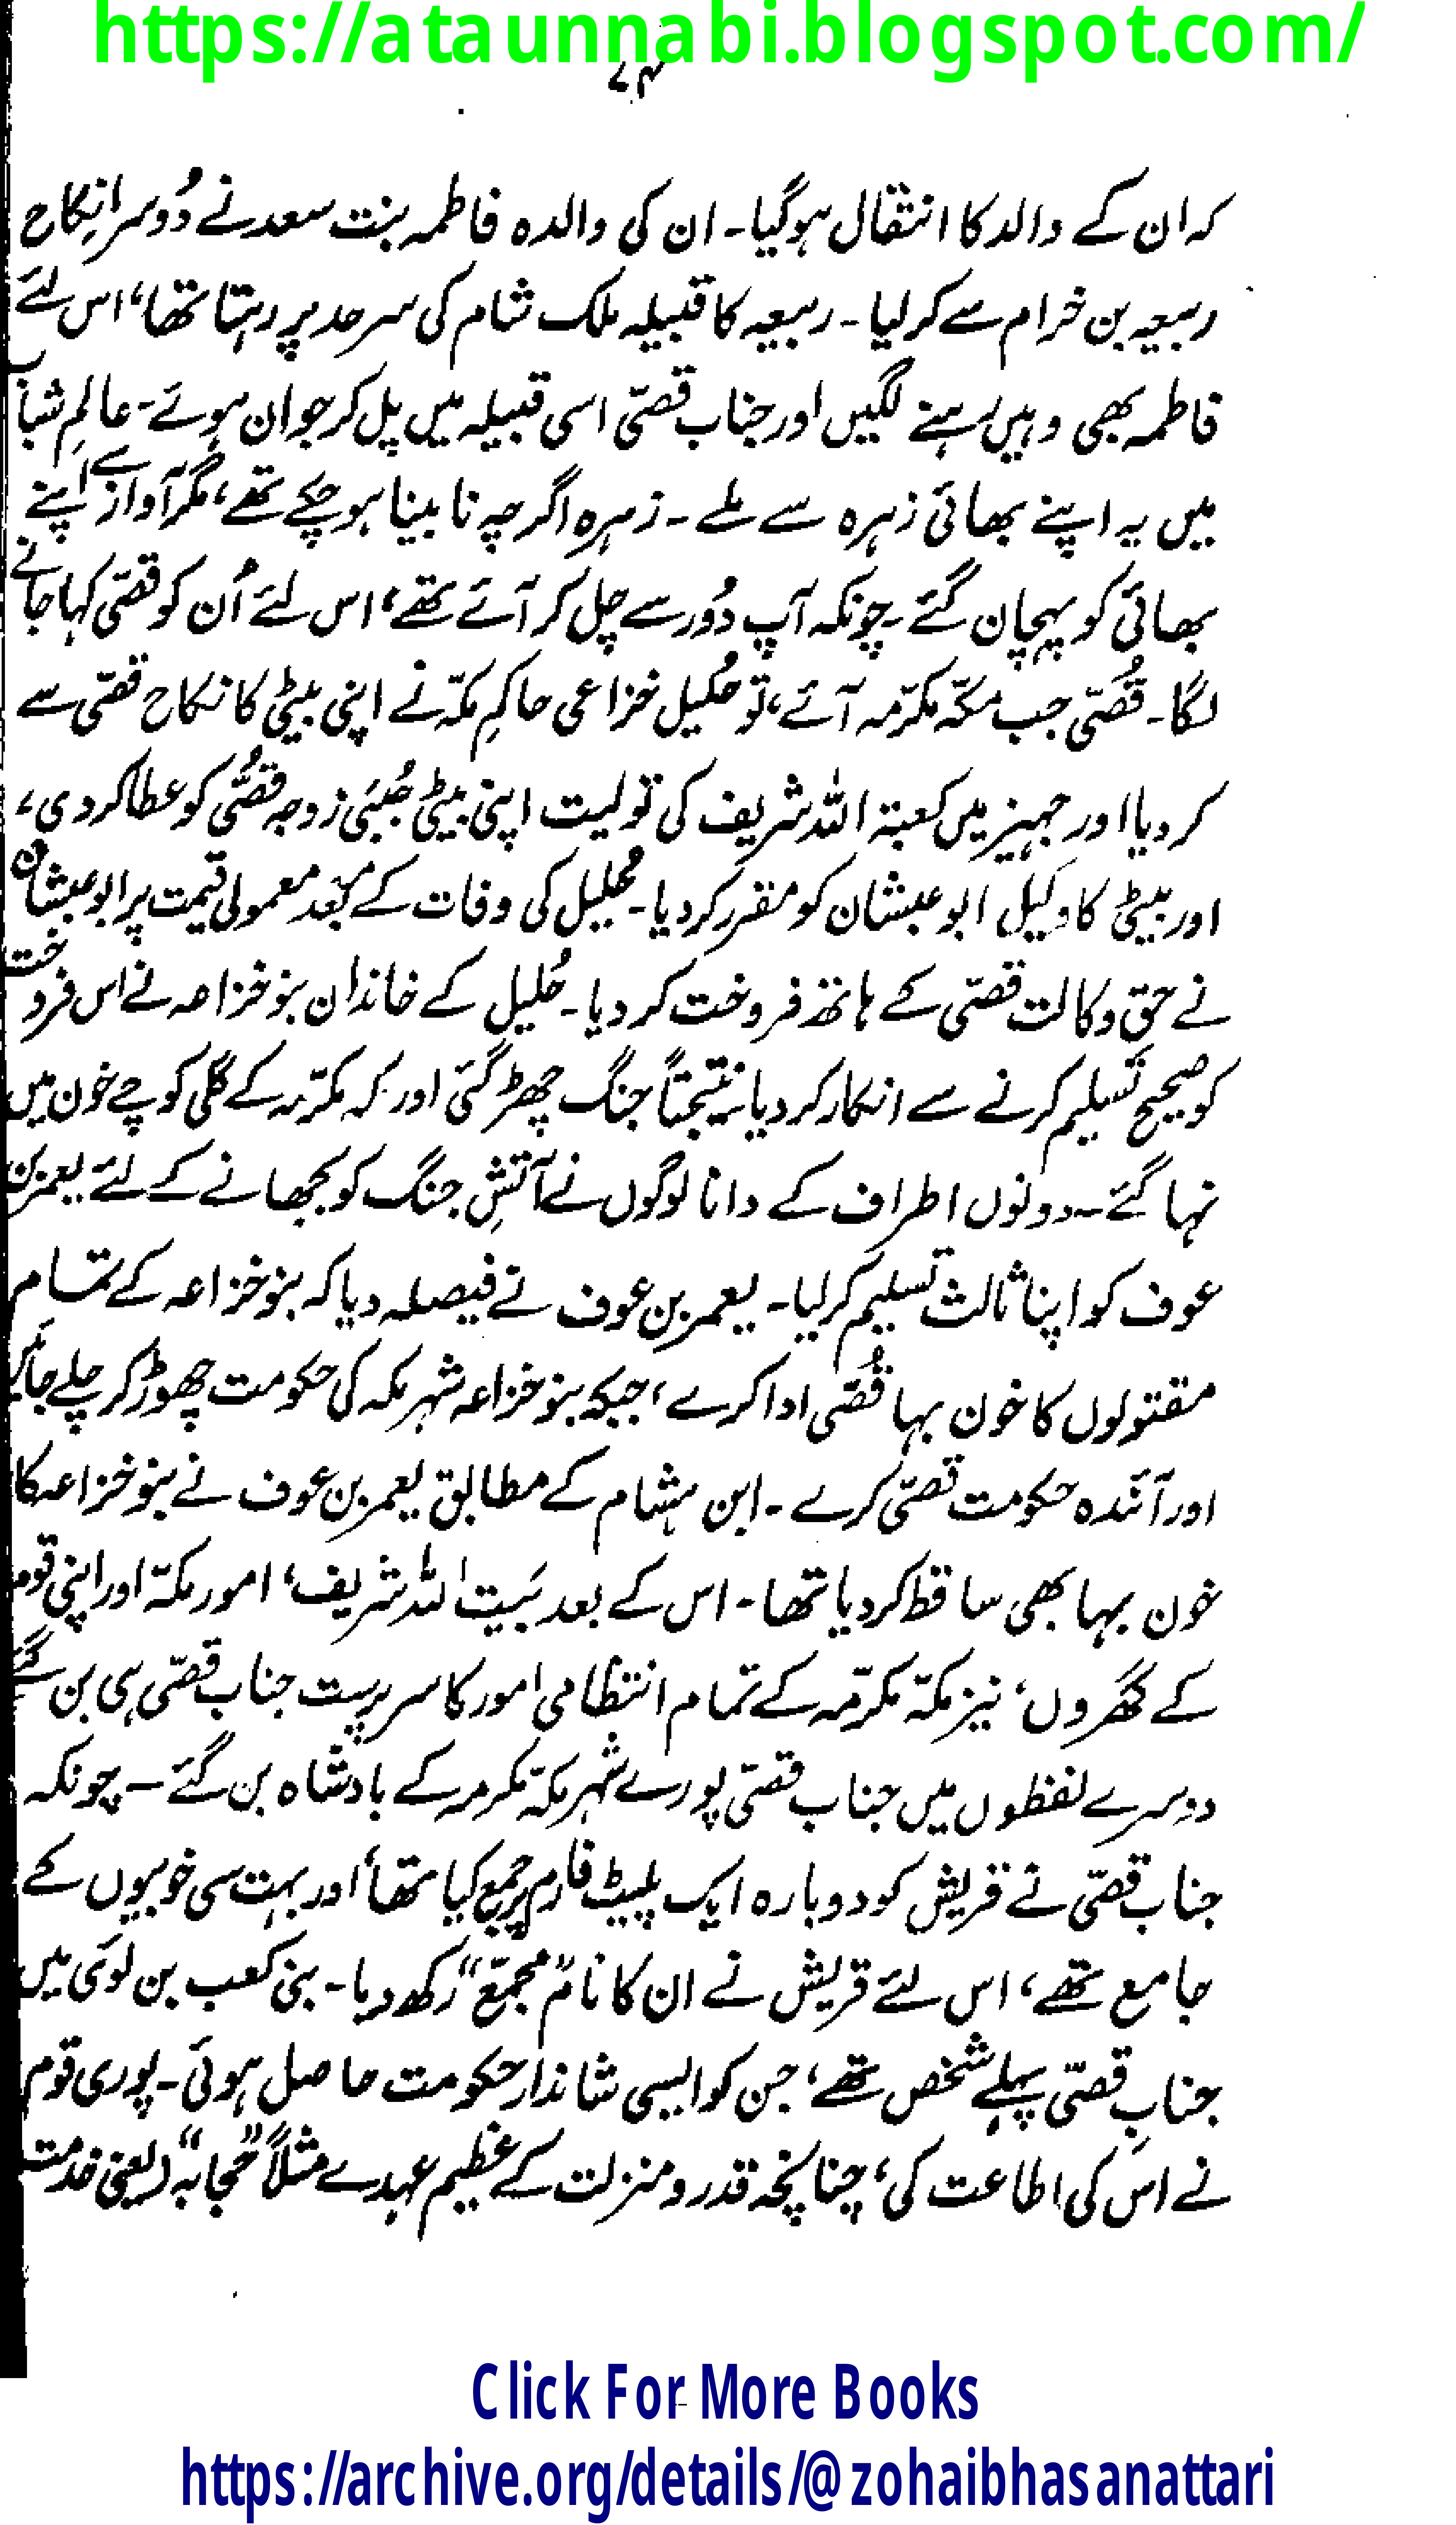 https://ataunnabi.blogspot.com/
۷۴
کہ ان کے والد کا انتقال ہوگیا۔ ان کی والدہ فاطمہ بنت سعد نے دُوسرا نِکاح
ربیعہ بن خرام سے کر لیا۔ ربیعہ کا قبیلہ ملک شام کی سرحد پر رہتا تھا، اس لئے
فاطمہ بھی وہیں رہنے لگیں اور جناب قصّی اسی قبیلہ میں پل کر جوان ہوئے۔ عالمِ شباب
میں یہ اپنے بھائی زہرہ سے ملے۔ زہرہ اگرچہ نابینا ہو چکے تھے، مگر آواز سے اپنے
بھائی کو پہچان گئے۔ چونکہ آپ دُور سے چل کر آئے تھے، اس لئے اُن کو قصّی کہا جانے
لگا۔ قُصّی جب مکّہ مکرّمہ آئے، تو حُلیل خزاعی حاکمِ مکّہ نے اپنی بیٹی کا نکاح قصّی سے
کر دیا اور جہیز میں کعبۃ اللہ شریف کی تولیت اپنی بیٹی حُبَّی زوجہ قصُّی کو عطا کر دی،
اور بیٹی کا وکیل ابو عبشان کو مقرر کر دیا۔ حُلیل کی وفات کے بعد معمولی قیمت پر ابو عبشان
نے حقِ وکالت قصّی کے ہاتھ فروخت کر دیا۔ حُلیل کے خاندان بنو خزاعہ نے اس فروخت
کو صحیح تسلیم کرنے سے انکار کر دیا۔ نتیجتاً جنگ چھڑ گئی اور مکہ مکرّمہ کے گلی کوچے خون میں
نہا گئے۔ دونوں اطراف کے دانا لوگوں نے آتشِ جنگ کو بجھانے کے لئے یعمر بن
عوف کو اپنا ثالث تسلیم کر لیا۔ یعمر بن عوف نے فیصلہ دیا کہ بنو خزاعہ کے تمام
مقتولوں کا خون بہا قُصّی ادا کرے، جبکہ بنو خزاعہ شہر مکہ کی حکومت چھوڑ کر چلے جائیں
اور آئندہ حکومت قصّی کرے۔ ابن ہشام کے مطابق یعمر بن عوف نے بنو خزاعہ کا
خون بہا بھی ساقط کر دیا تھا۔ اس کے بعد بَیت اللہ شریف، امور مکّہ اور اپنی قوم
کے گھروں، نیز مکّہ مکرّمہ کے تمام انتظامی امور کا سرپرست جناب قصّی ہی بن گئے
دوسرے لفظوں میں جناب قصّی پورے شہر مکّہ مکرمہ کے بادشاہ بن گئے۔ چونکہ
جناب قصّی نے قریش کو دوبارہ ایک پلیٹ فارم پر جمع کیا تھا، اور بہت سی خوبیوں کے
جامع تھے، اس لئے قریش نے ان کا نام ”مجمّع“ رکھ دیا۔ بنی کعب بن لوئی میں
جنابِ قصّی پہلے شخص تھے، جن کو ایسی شاندار حکومت حاصل ہوئی۔ پوری قوم
نے اس کی اطاعت کی، چنانچہ قدر و منزلت کے عظیم عہدے مثلاً ”حجابہ“ (یعنی خدمت
Click For More Books
https://archive.org/details/@zohaibhasanattari